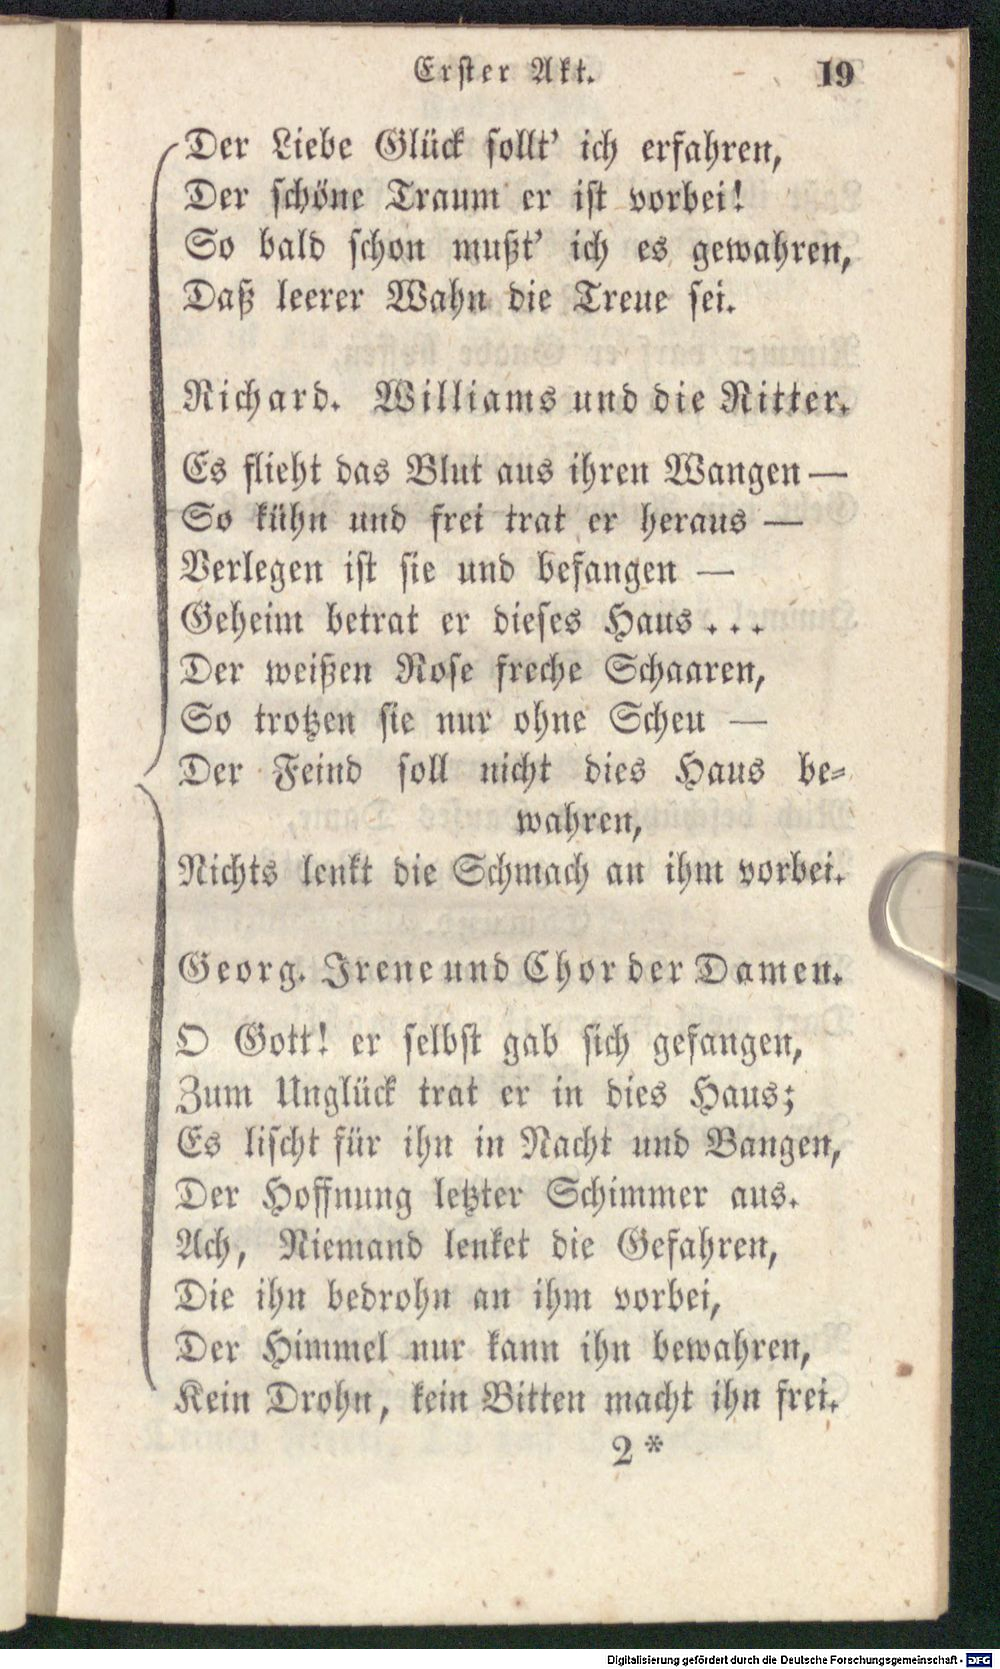 Erster Akt. 19
Der Liebe Glück sollt' ich erfahren,
Der schöne Traum er ist vorbei!
So bald schon mußt' ich es gewahren,
Daß leerer Wahn die Treue sei.
Richard. Williams und die Ritter.
Es flieht das Blut aus ihren Wangen —
So kühn und frei trat er heraus —
Verlegen ist sie und befangen —
Geheim betrat er dieses Haus . . .
Der weißen Rose freche Schaaren,
So trotzen sie nur ohne Scheu —
Der Feind soll nicht dies Haus be-
wahren,
Nichts lenkt die Schmach an ihm vorbei.
Georg. Irene und Chor der Damen.
O Gott! er selbst gab sich gefangen,
Zum Unglück trat er in dies Haus;
Es lischt für ihn in Nacht und Bangen,
Der Hoffnung letzter Schimmer aus.
Ach, Niemand lenket die Gefahren,
Die ihn bedrohn an ihm vorbei,
Der Himmel nur kann ihn bewahren,
Kein Drohn, kein Bitten macht ihn frei.
2 *
Digitalisierung gefördert durch die Deutsche Forschungsgemeinschaft - DFG